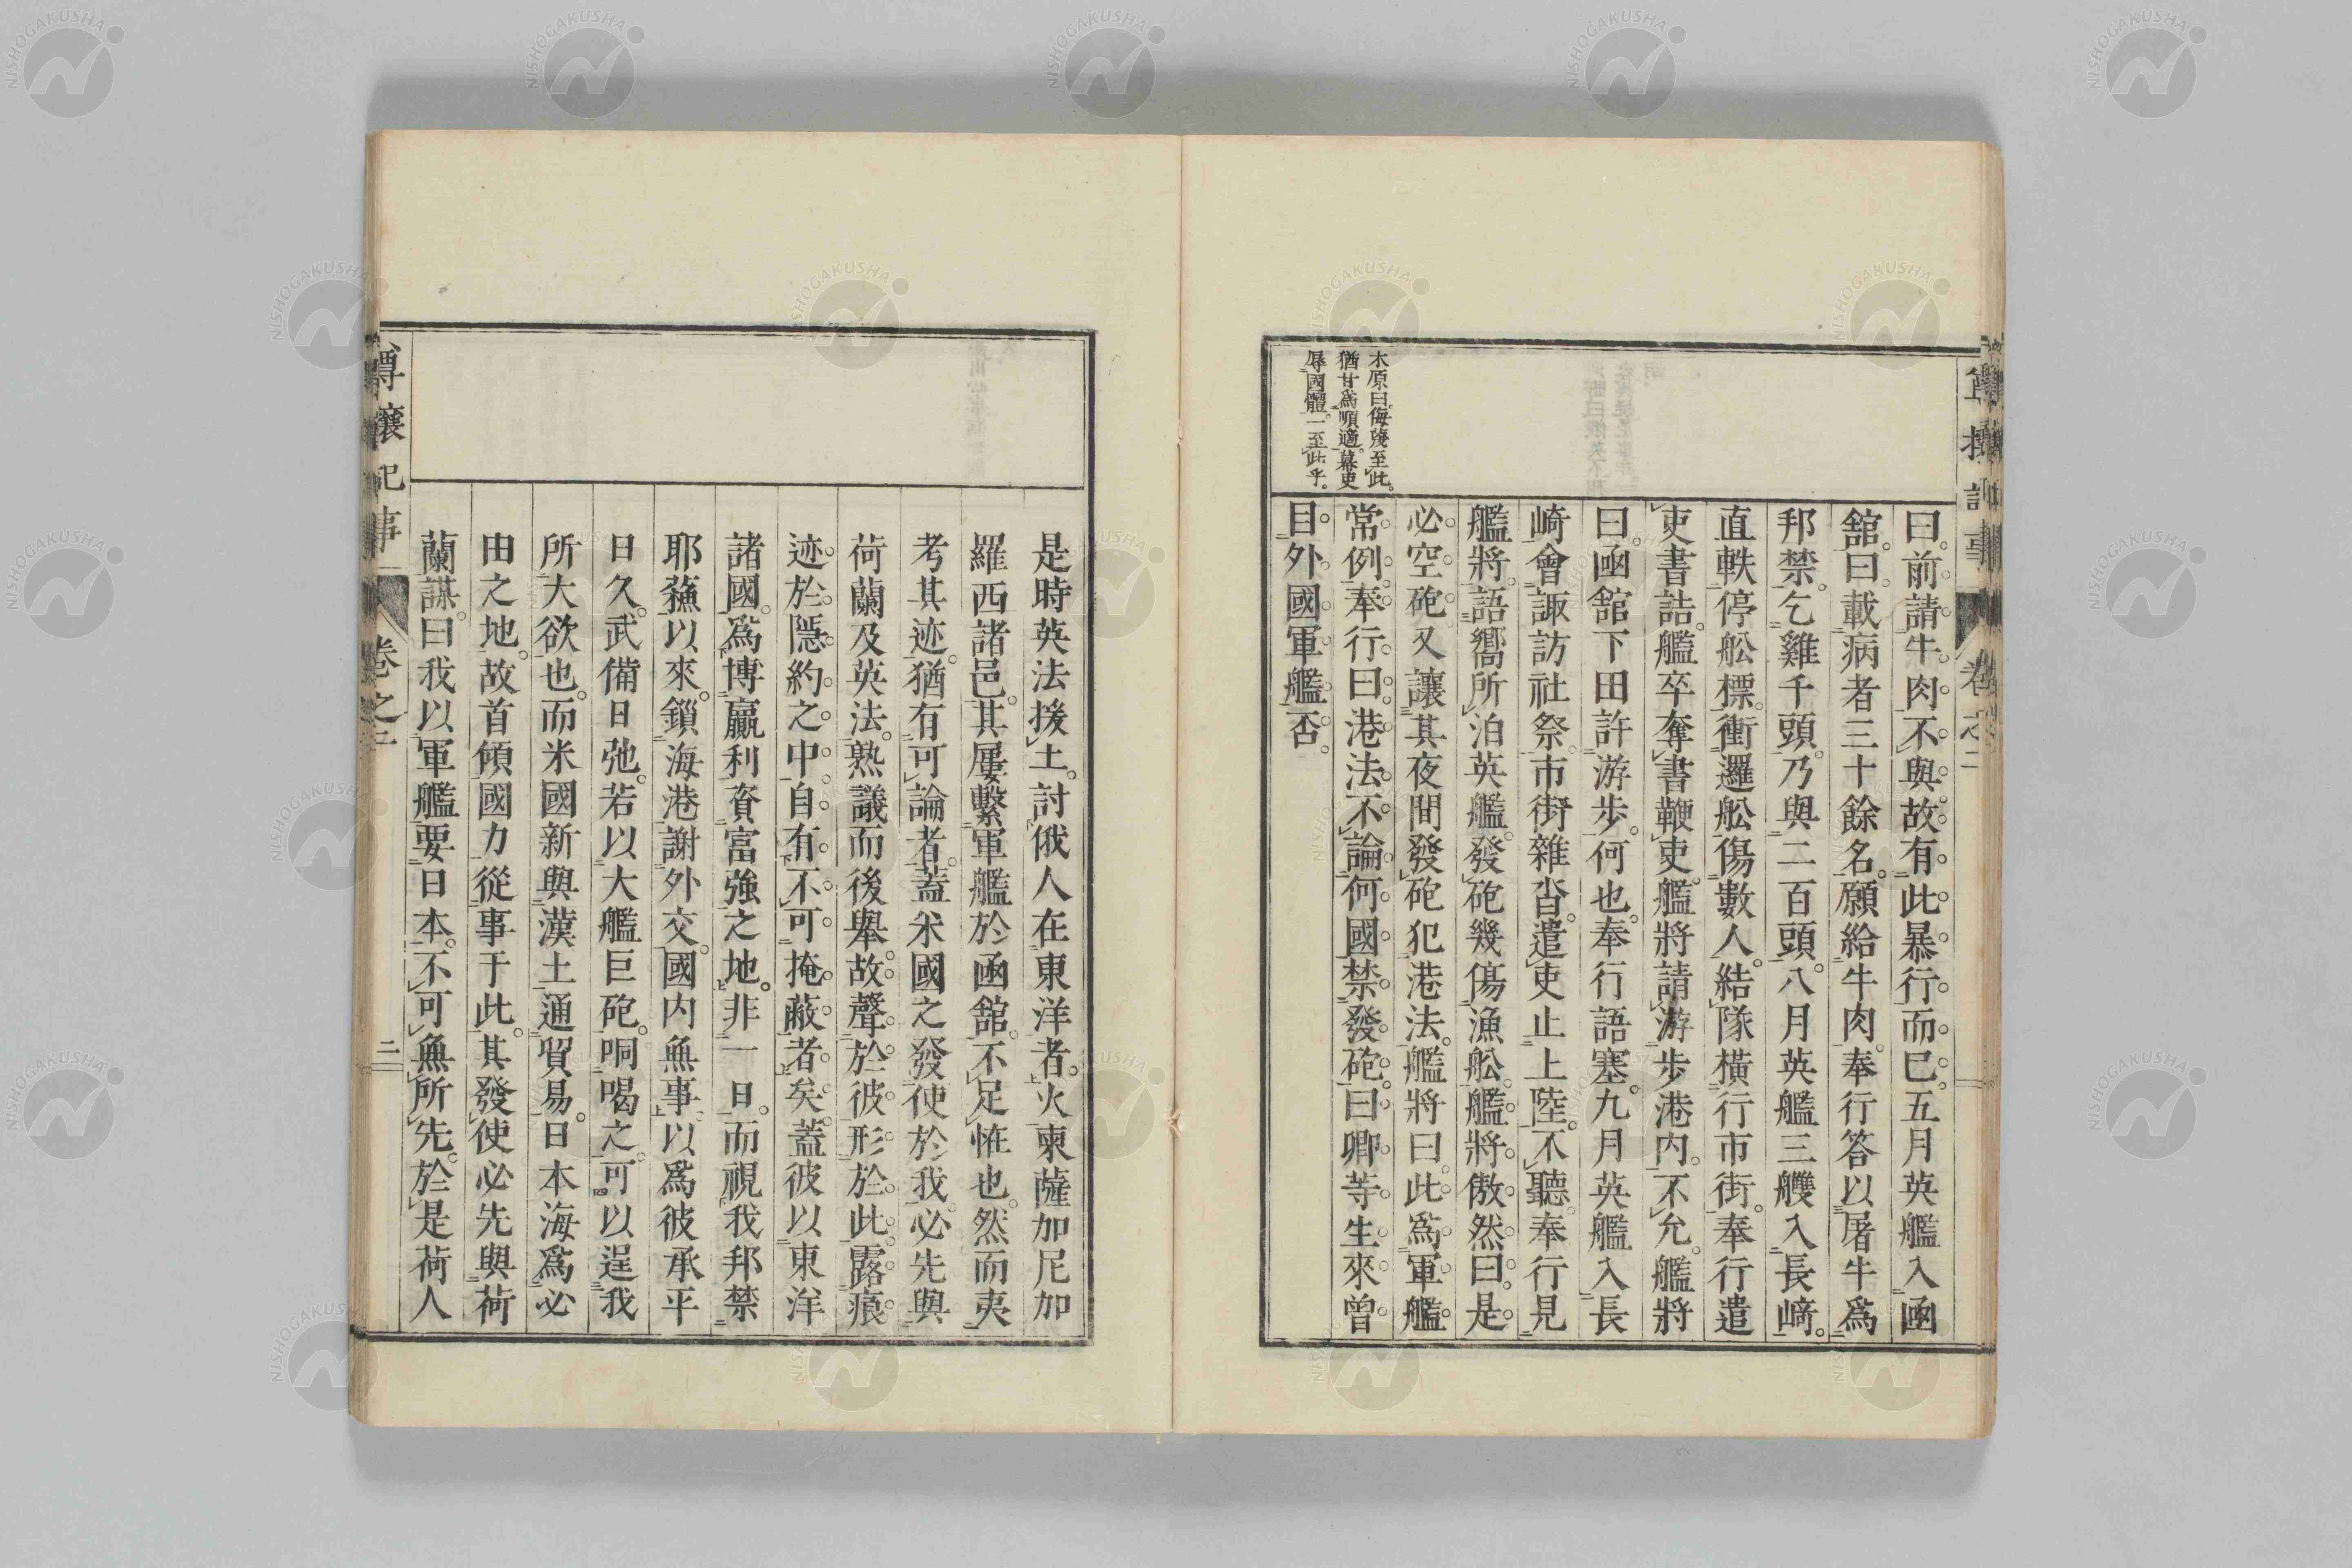 曰。前請牛肉。不與。故有此暴行而巳。五月英艦入函
舘。曰。載病者三十餘名。願給牛肉。奉行答以屠牛爲
邦禁。乞雞千頭。乃與二百頭。八月英艦三艘入長﨑。
直軼停舩標。衝邏舩傷數人。結隊橫行市街。奉行遣
吏書詰。艦卒奪書鞭吏。艦將請游步港內。不允。艦將
曰。函舘下田許游步。何也。奉行語塞。九月英艦入長
崎。會諏訪社祭。市街雜沓。遣吏止上陸。不聽。奉行見
艦將。語嚮所泊英艦。發砲幾傷漁舩。艦將傲然曰。是
必空砲。又讓其夜間發砲犯港法。艦將曰。此爲軍艦
常例。奉行曰。港法不論何國。禁發砲。曰。卿等生來曾
目外國軍艦否。
木原曰。侮蔑至此。
猶甘爲順適。幕吏
辱國體。一至此乎。
是時英法援土。討俄人在東洋者。火柬薩加尼加
羅西諸邑。其屢繫軍艦於函舘。不足恠也。然而夷
考其迹。猶有可論者。蓋米國之發使於我。必先與
荷蘭及英法。熟議而後舉。故聲於彼。形於此。露痕
迹於隱約之中。自有不可掩蔽者矣。蓋彼以東洋
諸國。爲博贏利資富強之地。非一日。而視我邦禁
耶蘓以來。鎖海港謝外交。國内無事。以爲彼承平
日久。武備日弛。若以大艦巨砲。恫喝之。可以逞我
所大欲也。而米國新與漢土通貿易。日本海爲必
由之地。故首傾國力從事于此。其發使必先與荷
蘭謀。曰我以軍艦要日本。不可無所先。於是荷人
尊攘記事
卷之二
二